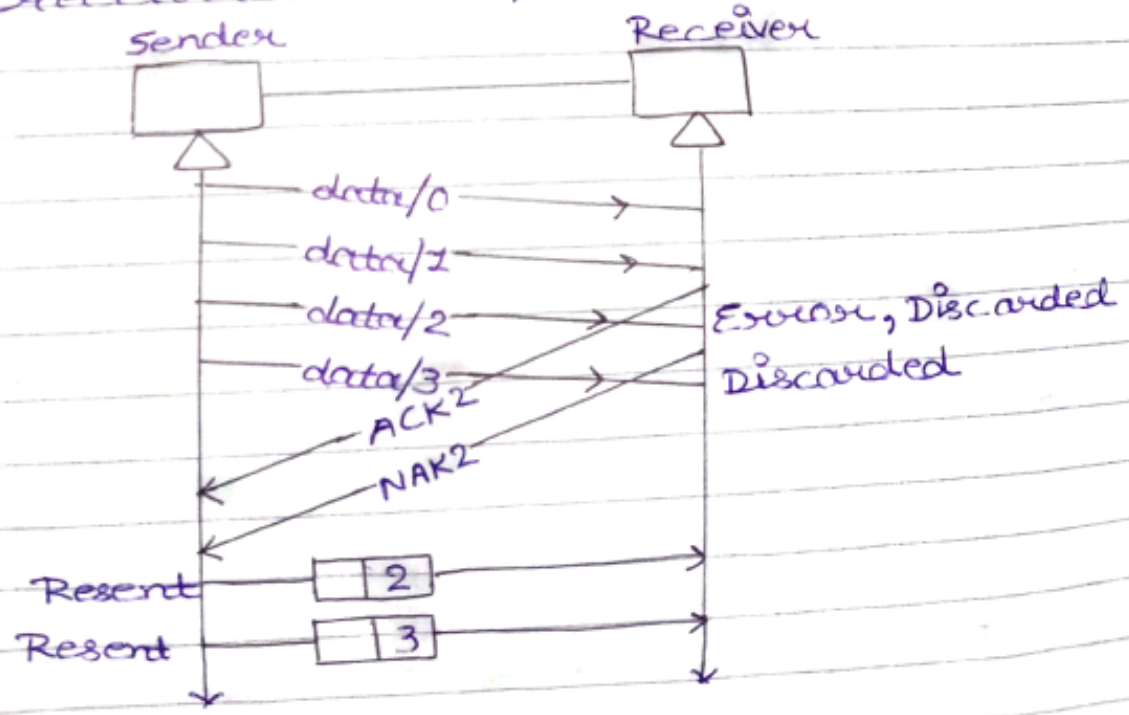 Sender
Receiver
data/0
data/1
data/2
Error, Discarded
data/3
Discarded
ACK2
NAK2
Resent 2
Resent 3